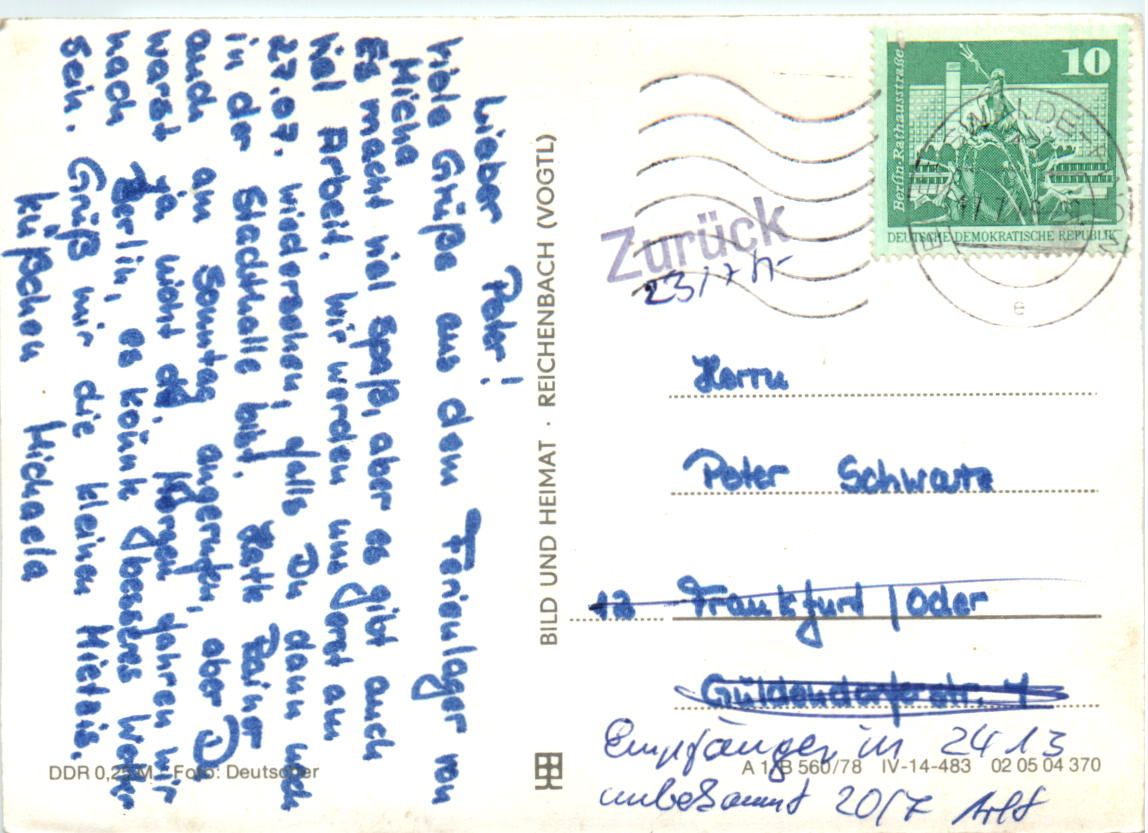 Lieber Peter!
Viele Grüße aus dem Ferienlager von
Micha
Es macht viel Spaß, aber es gibt auch
viel Arbeit. Wir werden uns erst am
27.07. wiedersehen, falls Du dann noch
in der Stadthalle bist. Hatte Rainer
auch am Sonntag angerufen, aber D
warst ja nicht da. Morgen fahren wir
nach Berlin, es könnt besseres Wetter
sein. Grüß mir die kleinen
Küßchen Michaela
DDR 0,25 M · Foto: Deutscher
BILD UND HEIMAT · REICHENBACH (VOGTL)
10
Berlin-Rathausstraße
DEUTSCHE DEMOKRATISCHE REPUBLIK
e
Zurück
23/7
Herrn
Peter Schwartz
12 Frankfurt / Oder
Güldendorferstr. 4
Empfänger in 2413
unbekannt 20/7
A 1/B 560/78 IV-14-483 02 05 04 370